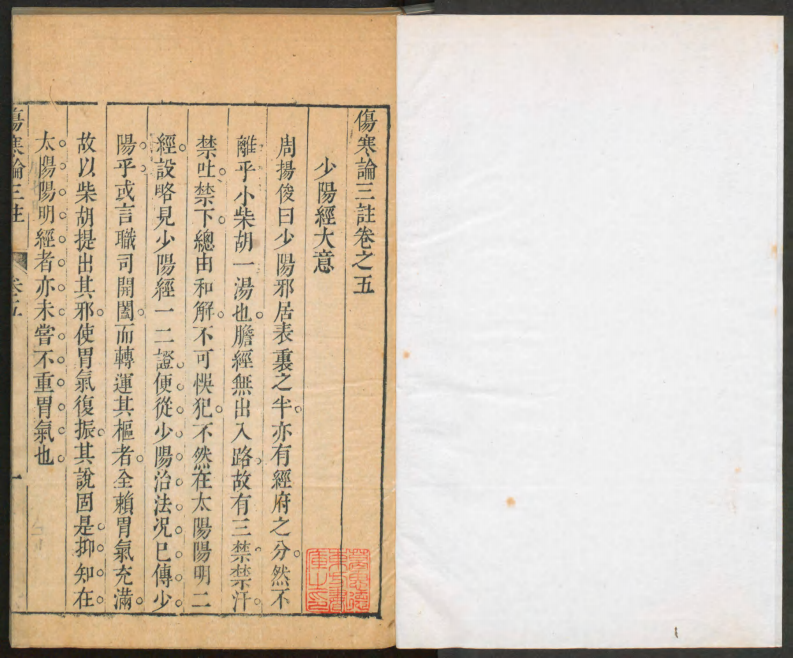 傷寒論三註卷之五
少陽經大意
周揚俊曰少陽邪居表裏之半亦有經府之分然不
離乎小柴胡一湯也膽經無出入路故有三禁禁汗
禁吐禁下總由和解不可悞犯不然在太陽陽明二
經設略見少陽經一二證便從少陽治法况已傳少
陽乎或言職司開闔而轉運其樞者全賴胃氣充滿
故以柴胡提出其邪使胃氣復振其說固是抑知在
太陽陽明經者亦未嘗不重胃氣也
傷寒論三註
卷五
一